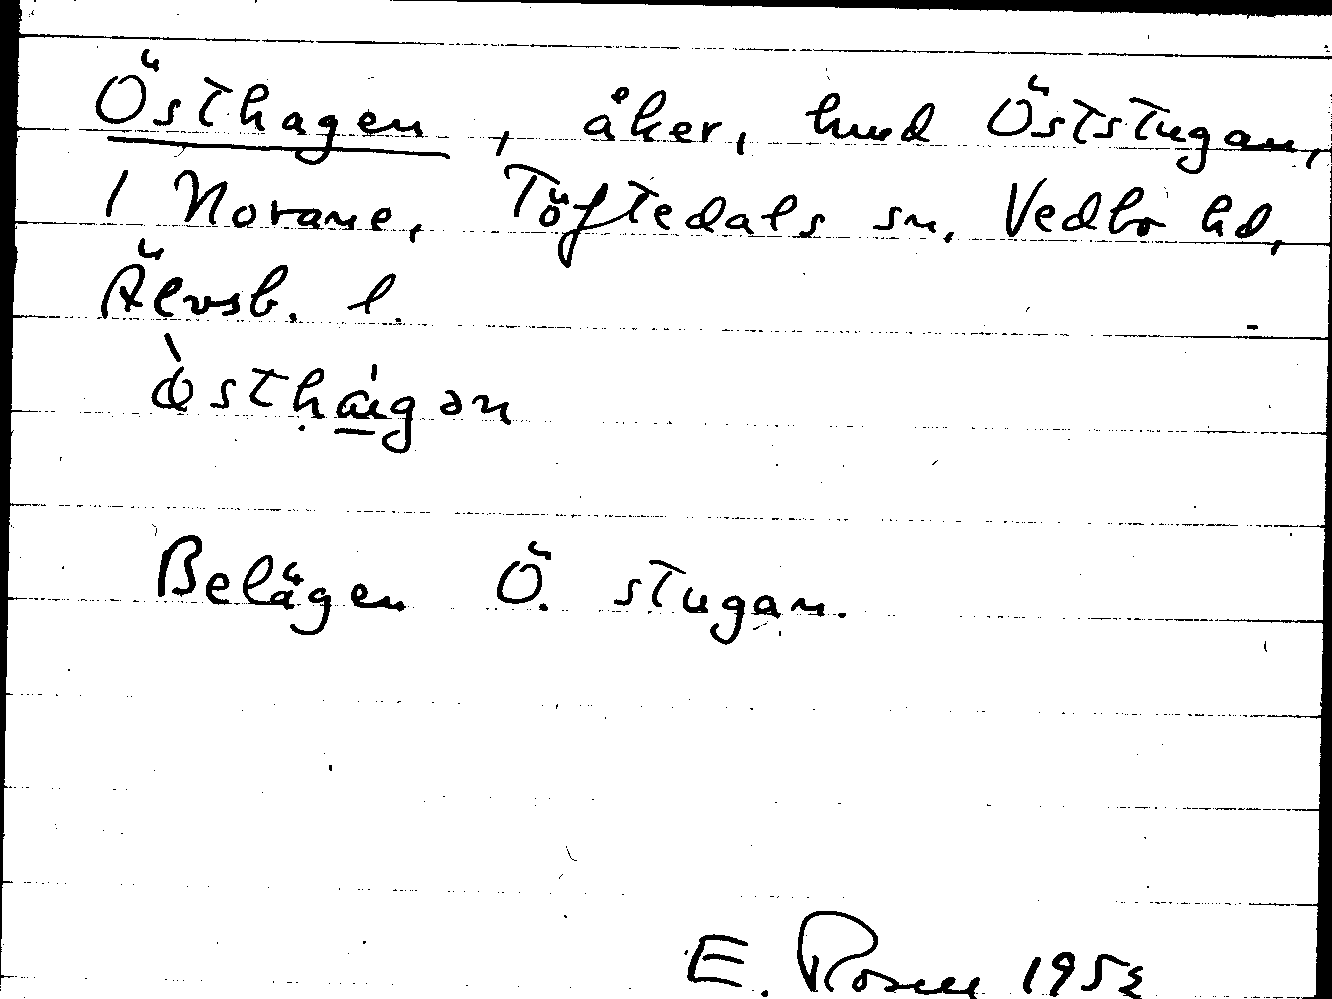 Östhagen, åker, hmd Öststugan,
1 Norane, Töftedals sn, Vedbo hd,
Älvsb. l.
Belägen Ö. stugan.
E. Rosen 195